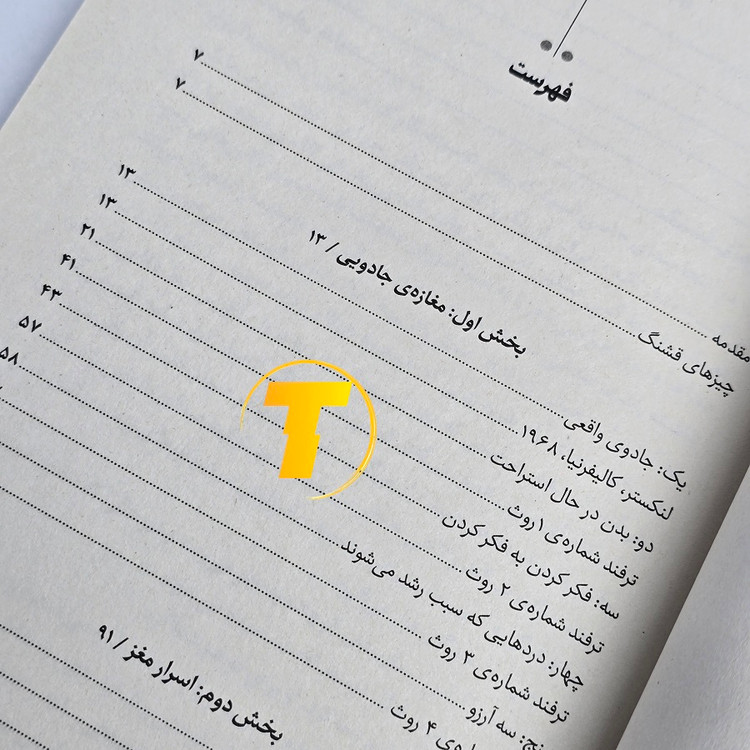 فهرست
مقدمه ........ ۷
چیزهای قشنگ ........ ۷
بخش اول: مغازه‌ی جادویی / ۱۳
یک: جادوی واقعی ........ ۱۳
لنکستر، کالیفرنیا، ۱۹۶۸ ........ ۱۳
دو: بدن در حال استراحت ........ ۲۱
ترفند شماره‌ی ۱ روث ........ ۴۱
سه: فکر کردن به فکر کردن ........ ۴۳
ترفند شماره‌ی ۲ روث ........ ۵۷
چهار: دردهایی که سبب رشد می‌شوند ........ ۵۸
ترفند شماره‌ی ۳ روث ........
پنج: سه آرزو ........
شماره‌ی ۴ روث ........
بخش دوم: اسرار مغز / ۹۱
T